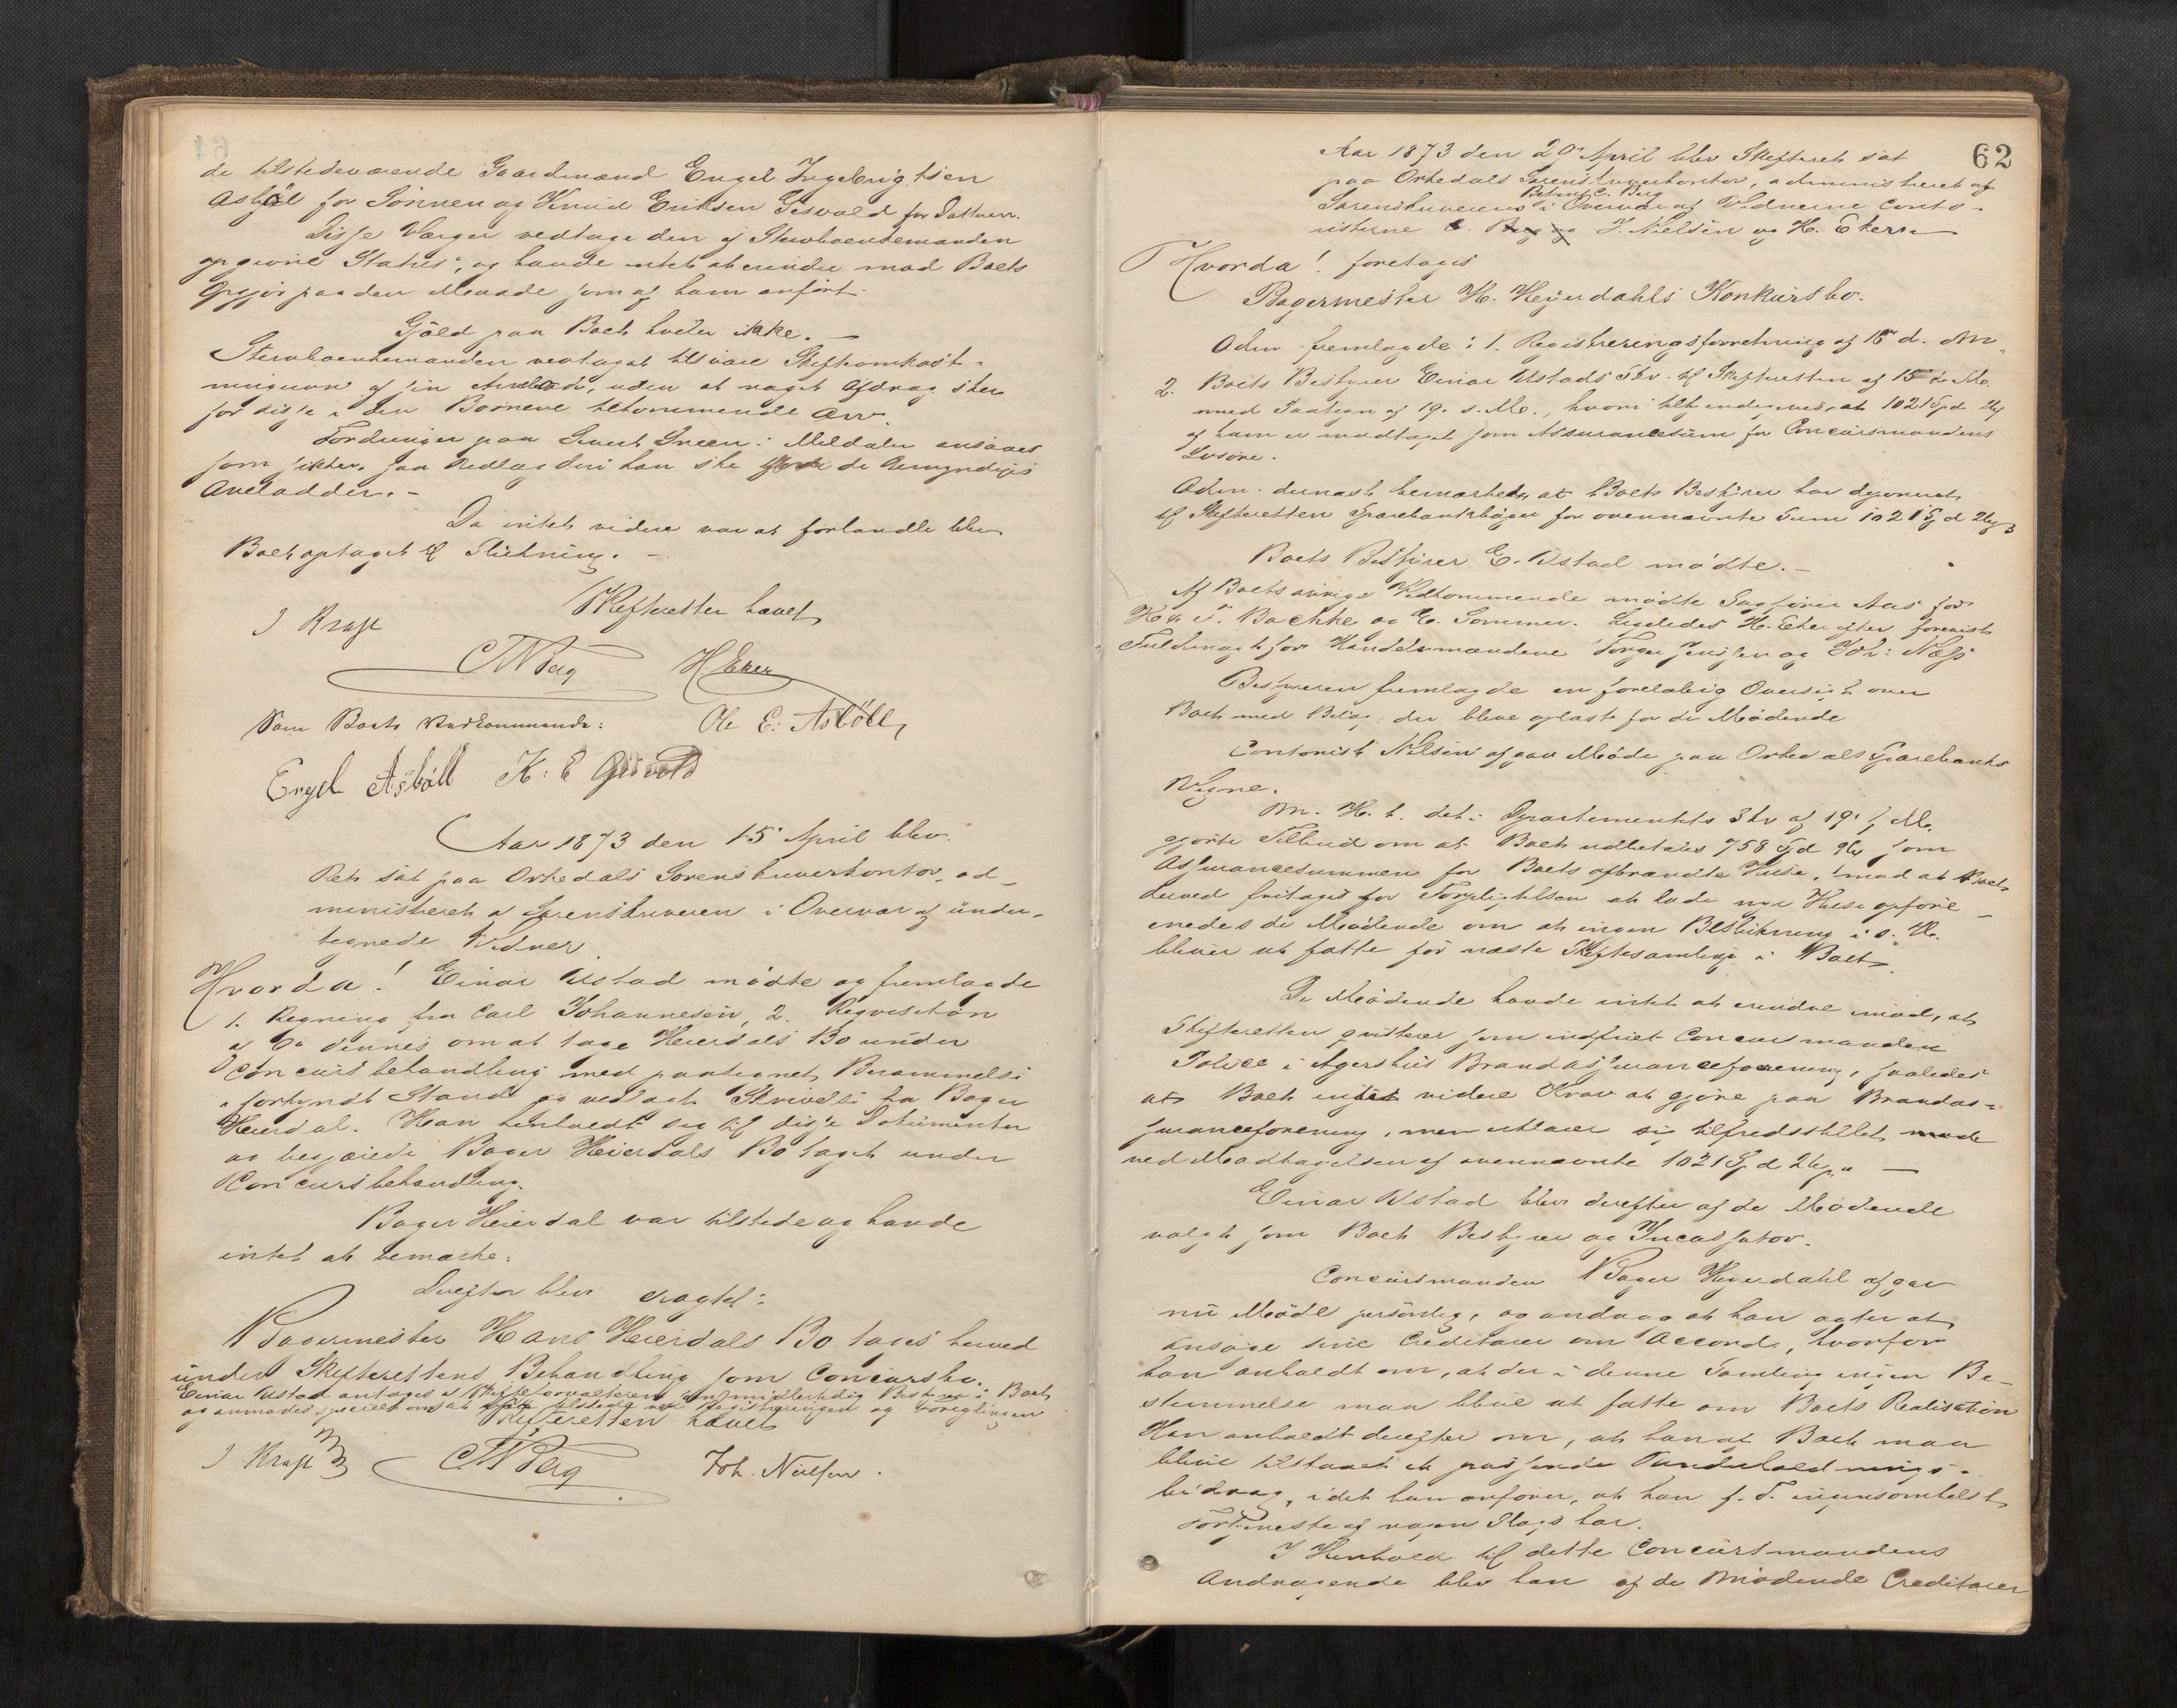 de tilstedeværende Gaardmænd Engel Ingebrigtsen
Asbøl for Sønnen og Knud Eriksen Gisvold for Datteren.
Disse Værger vedtage den af Sterboenkemanden
opgivne Status, og havde intet at erindre mod Boets
Opgjør paa den Maade som af ham anført.
Gjæld paa Boet hviler ikke. –
Sterboenkemanden vedtaget tilsvare Skifteomkost-
ningerne af sin , uden at noget Afdrag sker
for disse i den Børnene tilkommende Arv.
Fordringen paa Sivert Sneen i Meldalen ansaaes
som sikker, saa Udlæg deri kan ske de Umyndiges
Arvelodder. –
Da intet videre var at forhandle blev
Boet optaget til Slutning. –
Skifteretten hævet
I Kraft
CNBerg H. Eker
Som Boets Vedkommende: Ole E: Asbøll,
Engel Asbøll K: E Gisvold
Aar 1873 den 15 April blev
Ret sat paa Orkedals Sorenskriverkontor, ad-
ministreret af Sorenskriveren i Overvær af under-
tegnede Vidner.
Hvorda! Einar Ustad mødte og fremlagde
1. Regning fra Carl Johannesen, 2. Requisition
af dennes om at tage Heierdals Bo under
Concursbehandling med paategnet Berammelse
i forkyndt Stand og vedlagt Skrivelse fra Bager
Heierdal. Han henholdt sig til disse Dokumenter
og begjærede Bager Heierdals Bo taget under
Concursbehandling.
Bager Heierdal var tilstede og havde
intet at bemærke.
Derefter blev eragtet:
Bagermester Hans Heierdals Bo tages herved
under Skifterettens Behandling som Concursbo.
Einar Ustad antages af Skifteforvalteren som midlertidig Bestyrer i Boet
og anmodes specielt om at tilstede ved Registreringen og Forseglingen
Skifteretten hævet
I Kraft CNBerg Joh. Nielsen.
62
Aar 1873 den 29 April blev Skifteret sat
paa Orkedals Sorenskriverkontor, administreret af
Betient C. Berg
Sorenskriverens i Overvær af Vidnerne Conto-
risterne C. Berg og J. Nielsen og H. Eker. –
Hvorda! foretages
Bagermester H. Heyerdahls Konkursbo.
Adm. fremlagde: 1. Registreringsforretning af 15 d. M.
2. Boets Bestyrer Einar Ustads Skr. til Skifteretten af 15 d. M.
med Paategn af 19. s. M., hvori tilkjendegives, at 1021 Spd 2
af ham er modtaget som Assurancesum for Concursmandens
Løsøre.
Adm. dernæst bemærkede, at Boets Bestyrer har deponeret
til Skifteretten Sparebankbøger for ovennævnte Sum 1021 Spd 2
Boets Bestyrer E. Ustad mødte. –
Af Boets øvrige Vedkommende mødte Sagfører Aas for
H & F. Bachke og E. Sommer. Ligeledes H. Eker efter forevist
Fuldmagt for Handelsmændene Torger Jenssen og Joh: Næss
Bestyreren fremlagde en foreløbig Oversigt over
Boet med Bilag, der bleve oplæste for de Mødende
Contorist Nilsen afgav Møde paa Orkedals Sparebanks
Vegne.
M. H. t. det i Departementets Skr af 19. f. M.
gjorte Tilbud om at Boet udbetales 758 Spd som
Assurancesummen for Boets afbrændte Huse, mod at Boet
derved fritages for Forpligtelsen at lade nye Huse opføre
enedes de Mødende om at ingen Beslutning i s. H.
bliver at fatte før næste Skiftesamling i Boet.
De Mødende havde intet at erindre imod, at
Skifteretten qvitterer som indfriet Concursmandens
Police i Agershus Brandassuranceforening, saaledes
at Boet intet videre Krav at gjøre paa Brandas-
suranceforening, men erklærer sig tilfredsstillet
ved Modtagelsen af ovennævnte 1021 Spd 2 –
Einar Ustad blev derefter af de Mødende
valgt som Boets Bestyrer og Incassator.
Concursmanden Bager Heyerdahl afgav
nu Møde personlig, og androg at han agter at
ansøge sine Creditorer om Accord, hvorfor
han anholdt om, at der i denne Samling ingen Be-
stemmelse maa blive at fatte om Boets Realisation
Han anholdt derefter om, at han af Boet maa
blive tilstaaet et passende Underholdnings-
bidrag, idet han anfører, at han f. T. ingensomhelst
Fortjeneste af nogen Slags har.
I Henhold til dette Concursmandens
Andragende blev han af de Mødende Creditorer